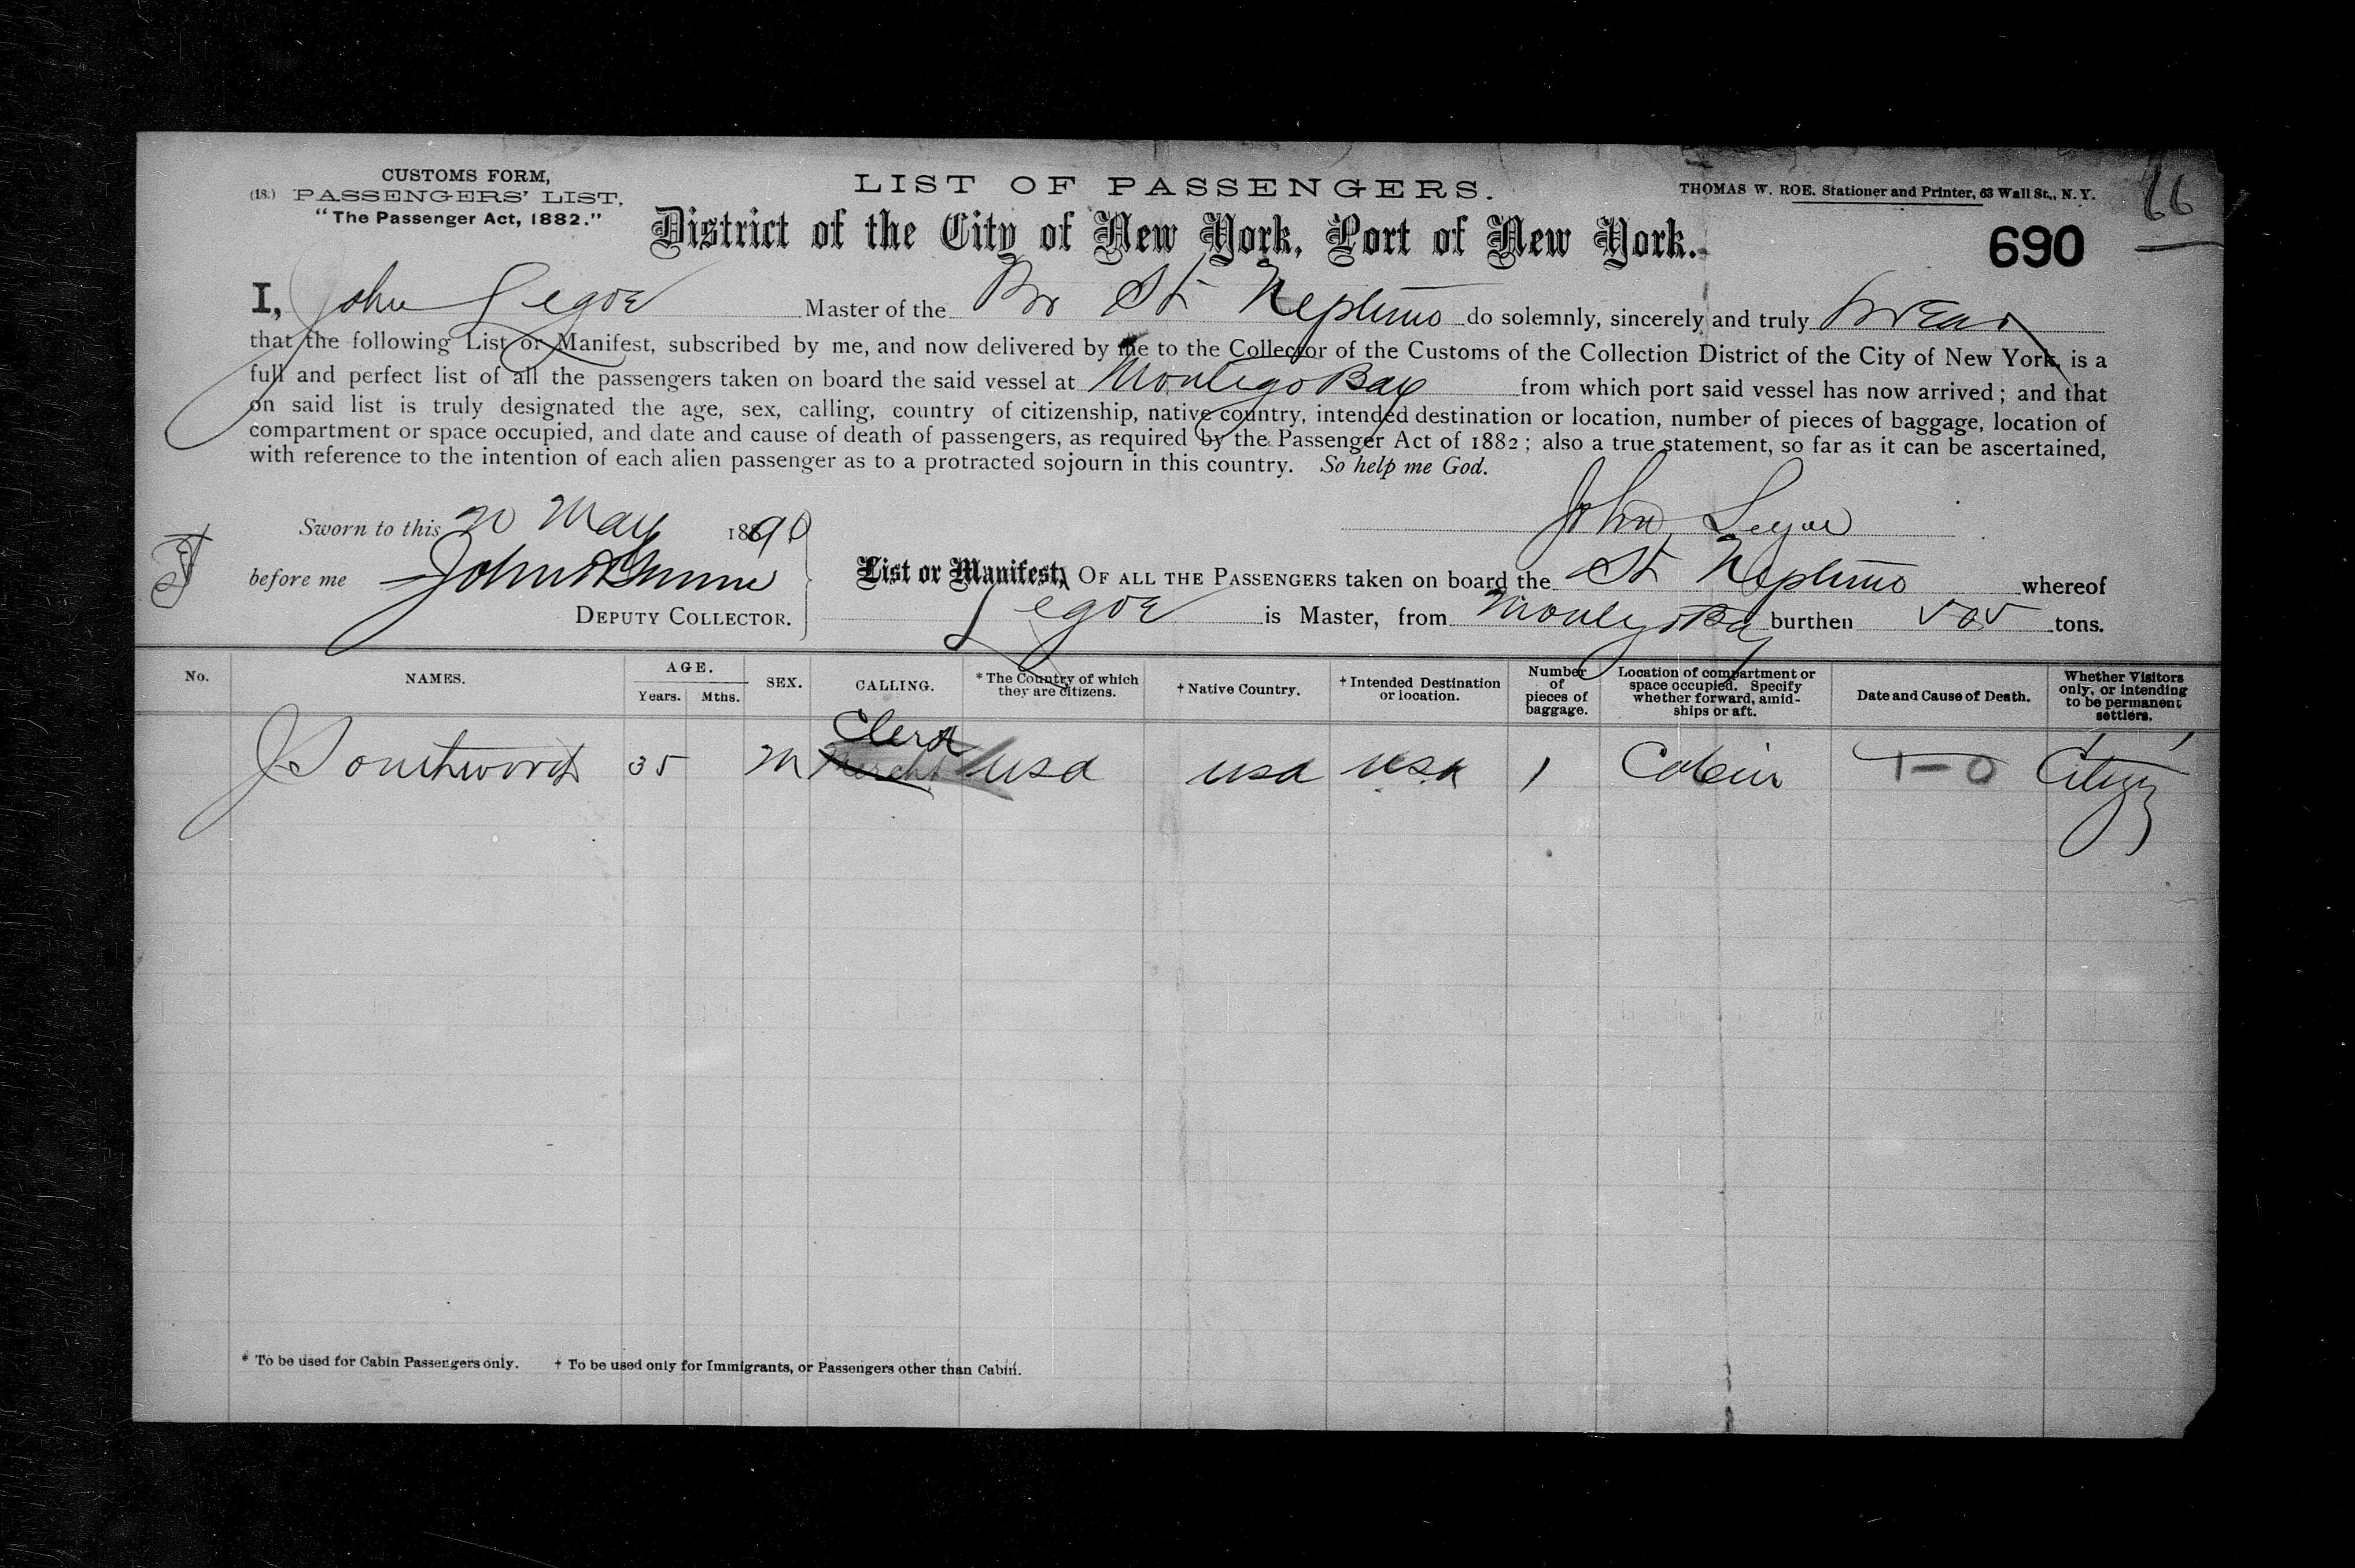 CUSTOMS FORM,
(18.) PASSENGERS' LIST,
"The Passenger Act, 1882."
LIST OF PASSENGERS.
THOMAS W. ROE. Stationer and Printer, 63 Wall St., N. Y.
66
District of the City of New York, Port of New York.
690
I, John Legoe Master of the Br St Neptuno do solemnly, sincerely and truly swear
that the following List or Manifest, subscribed by me, and now delivered by me to the Collector of the Customs of the Collection District of the City of New York, is a
full and perfect list of all the passengers taken on board the said vessel at Montego Bay from which port said vessel has now arrived; and that
on said list is truly designated the age, sex, calling, country of citizenship, native country, intended destination or location, number of pieces of baggage, location of
compartment or space occupied, and date and cause of death of passengers, as required by the Passenger Act of 1882; also a true statement, so far as it can be ascertained,
with reference to the intention of each alien passenger as to a protracted sojourn in this country. So help me God.
Sworn to this 20 May 1890
John Legoe
before me John
DEPUTY COLLECTOR.
List or Manifest, OF ALL THE PASSENGERS taken on board the St Neptuno whereof
Legoe is Master, from Montego Bay burthen 505 tons.
No. NAMES. AGE. Years. Mths. SEX. CALLING. * The Country of which they are citizens. † Native Country. † Intended Destination or location. Number of pieces of baggage. Location of compartment or space occupied. Specify whether forward, amidships or aft. Date and Cause of Death. Whether Visitors only, or intending to be permanent settlers.
Clerk
J Southworth 35 M Mercht usa usa usa 1 Cabin 1-0 Citizen
* To be used for Cabin Passengers only. † To be used only for Immigrants, or Passengers other than Cabin.